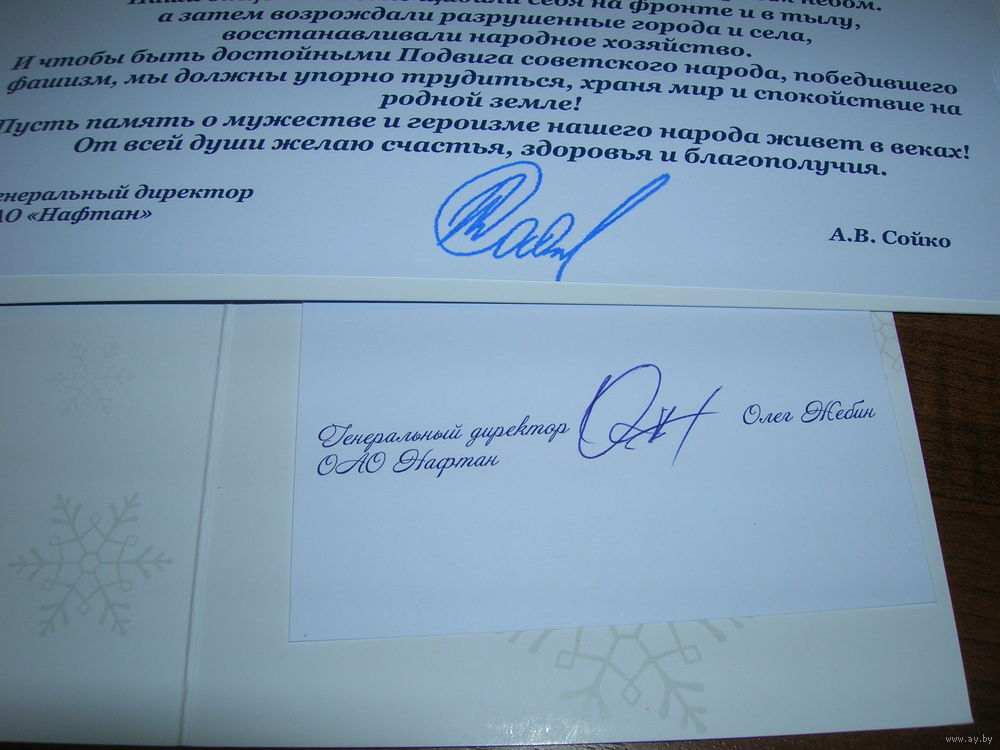 себя на фронте и в тылу,
а затем возрождали разрушенные города и села,
восстанавливали народное хозяйство.
И чтобы быть достойными Подвига советского народа, победившего
фашизм, мы должны упорно трудиться, храня мир и спокойствие на
родной земле!
Пусть память о мужестве и героизме нашего народа живет в веках!
От всей души желаю счастья, здоровья и благополучия.
енеральный директор
АО «Нафтан»
А.В. Сойко
Генеральный директор
ОАО Нафтан
Олег Жебин
www.ay.by